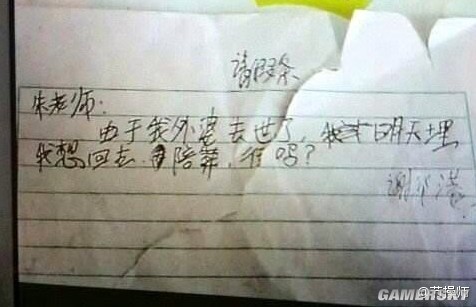 请假条
朱老师:
由于我外婆去世了,我明天埋
我想回去 陪葬,行吗?
GAMERSKY